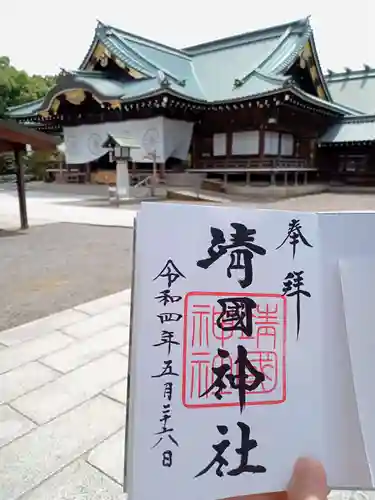 奉拝
靖國神社
靖國神社
令和四年五月二十六日